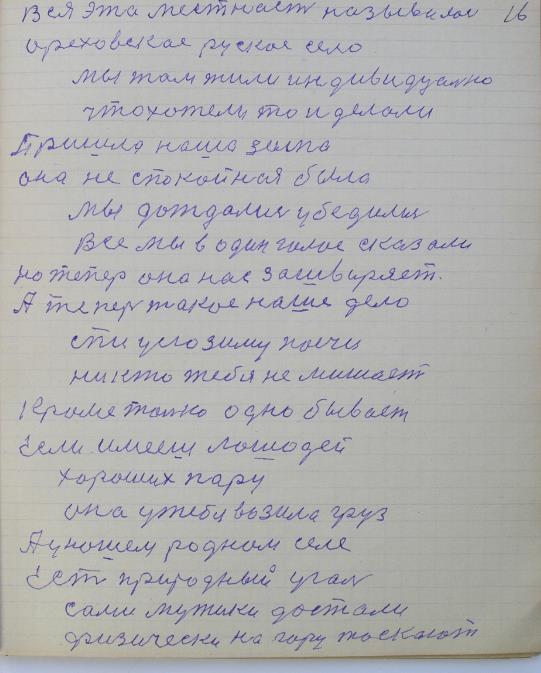 Вся эта местнаст называлас 16
ореховское руское село
мы там жили индивидуално
что хотели то и делали
Пришла наша зима
она не спокойная была
мы дождалис убедилис
все мы в один голос сказали
но тепер она нас зашвиряет.
А тепер такое наше дело
спи усю зиму ночи
никто тебя не мишает
Кроме толко одно бывает
Если имееш лошодей
хороших пару
она у тебя возила груз
А у ношем родном селе
Ест природный угал
сами мужики достали
физически на гору таскают